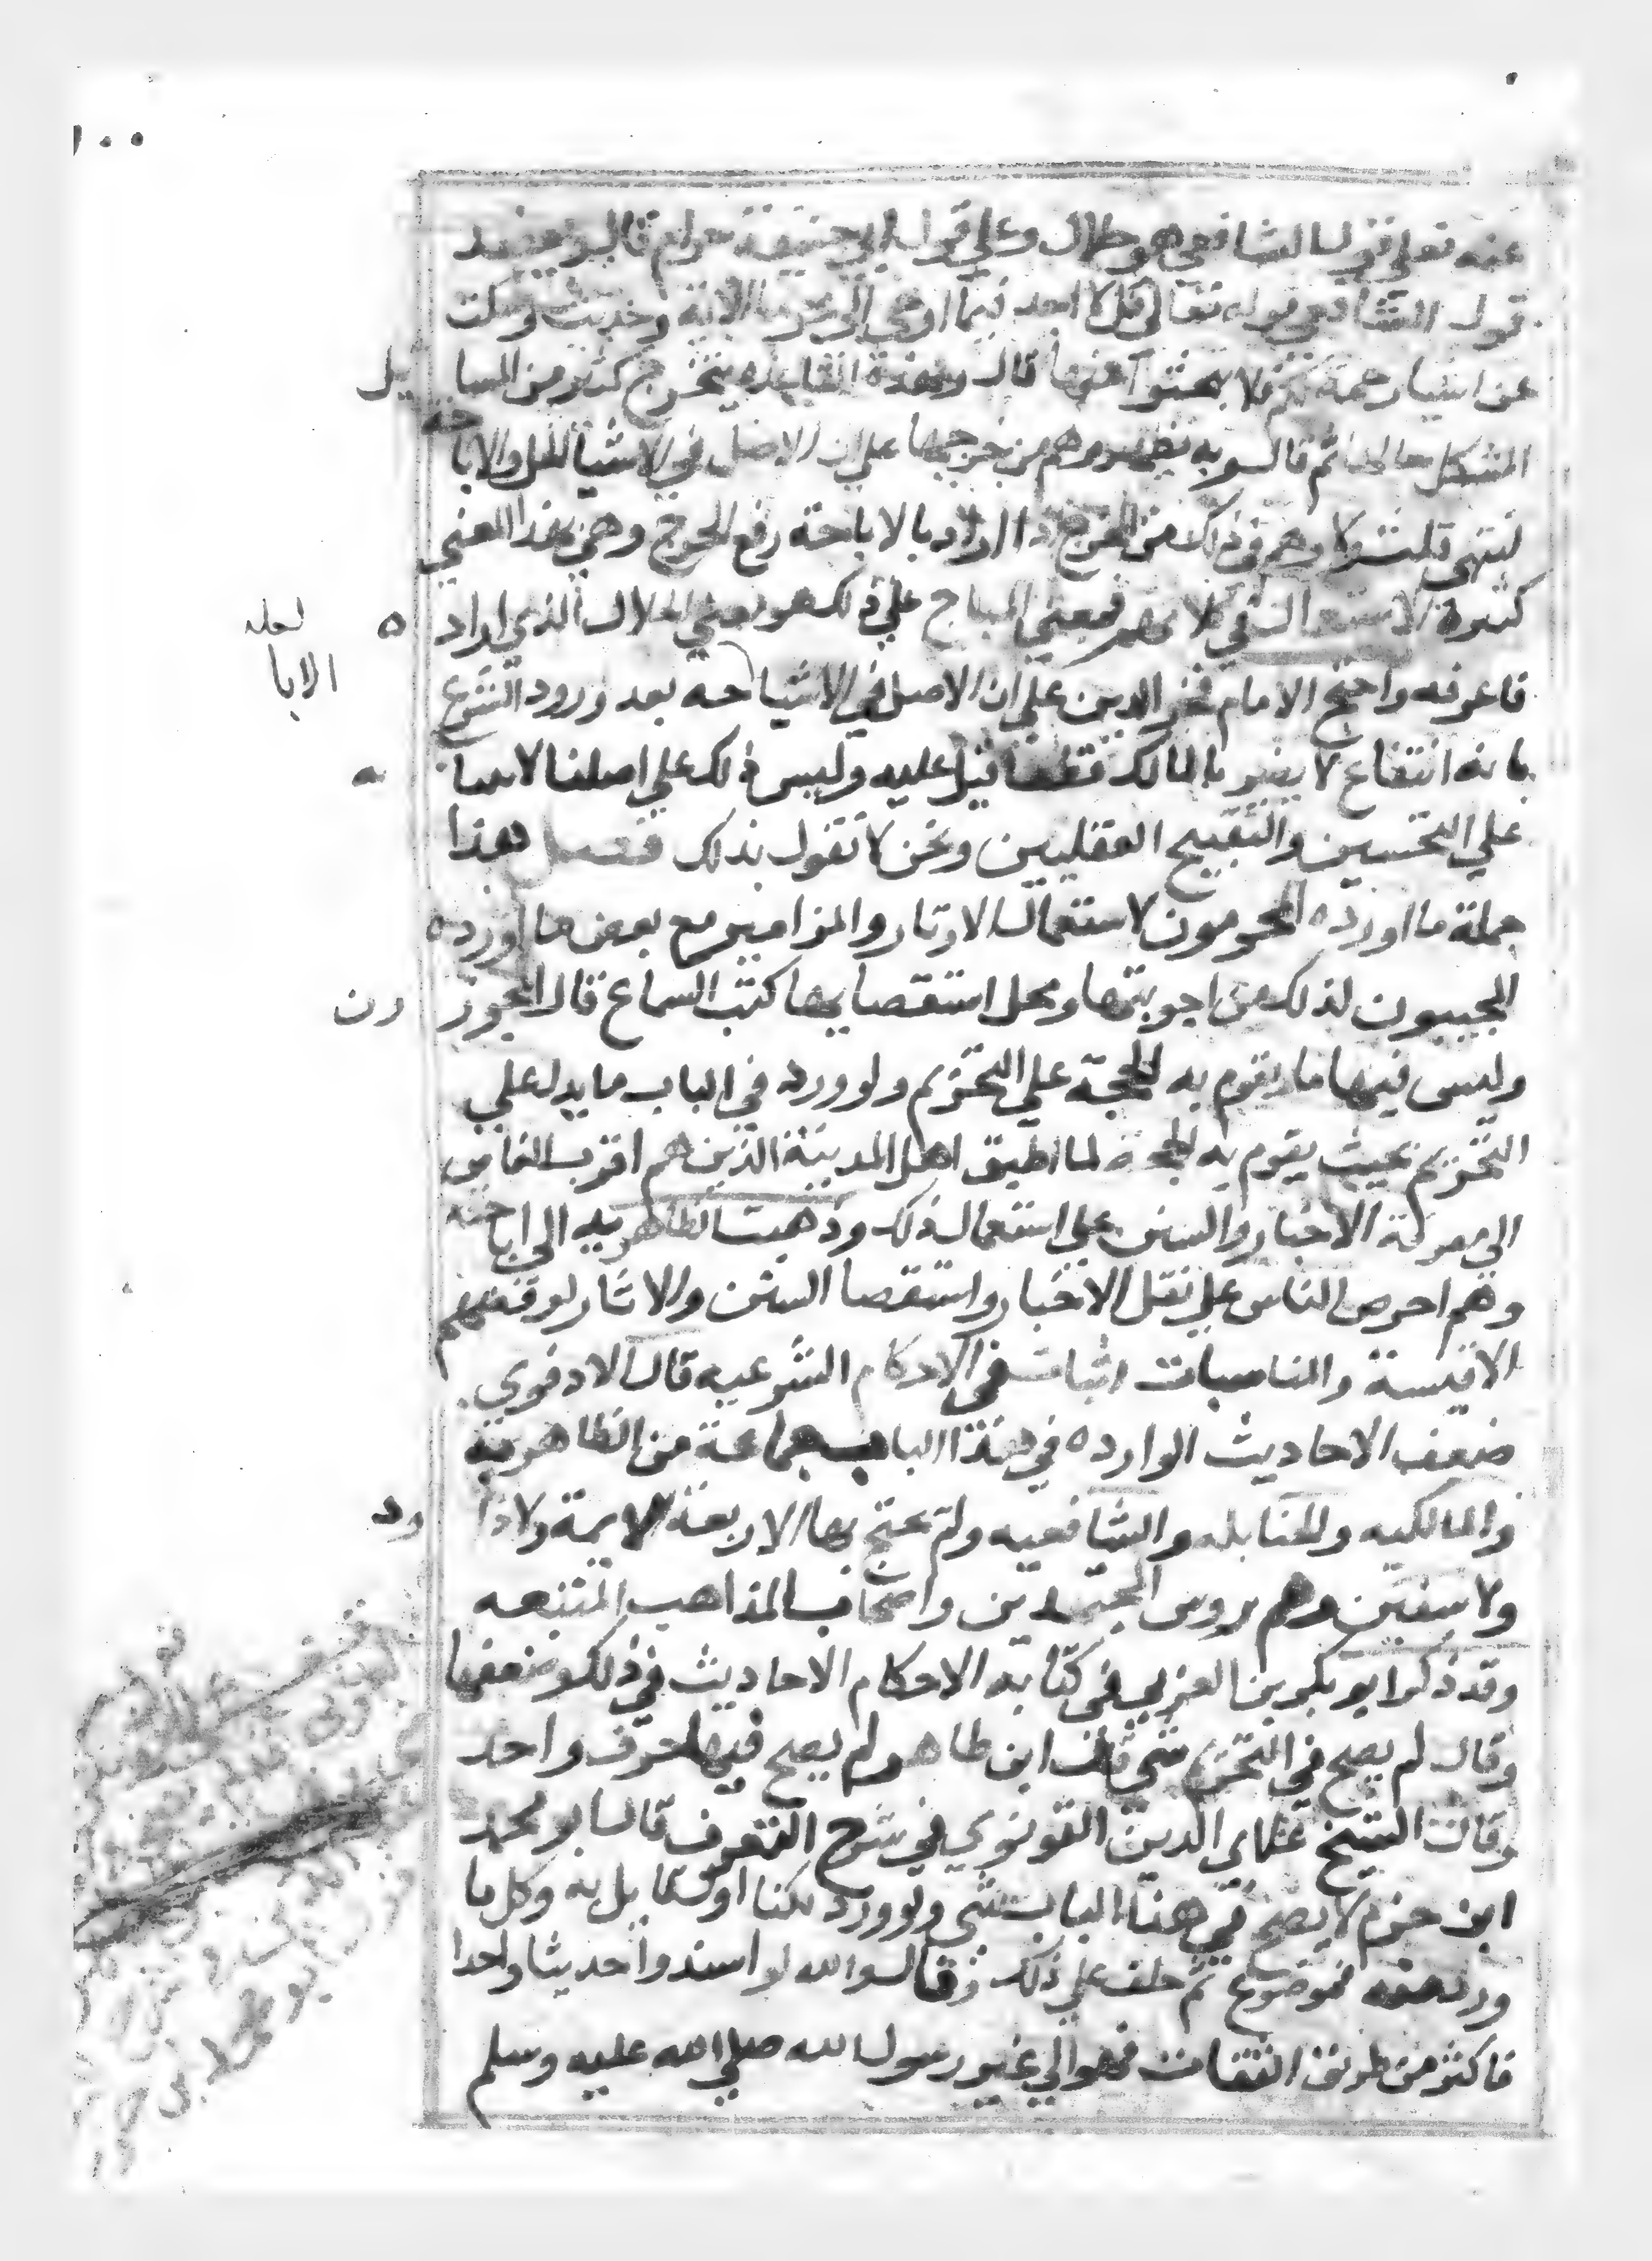 ١٠٠
عنه فعلى قول الشافعي هو حلال وعلى قول ابي حنيفة حرام قال ويعضد
قول الشافعي قوله تعالى قل لا اجد فيما اوحي الي محرما الاية وحديث وسكت
عن اشيا رحمة لكم فلا تبحثوا عنها قال وبهذه القاعدة يتخرج كثير من المسايل
المشكل حالها ثم قال وبه يظهر وهم من خرجها على ان الاصل في الاشيا الحل والاباحة
انتهى قلت ولا وهم في ذلك من المخرج اذ المراد بالاباحة رفع الحرج وهي بهذا المعني
كثيرة الاستعمال في كلامهم فمعني المباح علي ذلك هو معني الحلال الذي اراده
فاعرفه واحتج الامام فخر الدين علي ان الاصل في الاشيا حه بعد ورود الشرع
لعله
الابا
بانه انتفاع لا يضر بالمالك قطعا قيل عليه وليس ذلك علي اصلنا لابتنا به
علي التحسين والتقبيح العقليين ونحن لا نقول بذلك فصل هذا
جملة ما اورده المحرمون لاستعمال الاوتار والمزامير مع بعض ما اورده
المجيبون لذلك من اجوبتها ومحل استقصايها كتب السماع قال المجوزون
وليس فيها ما يقوم به الحجة علي التحريم ولو ورد في الباب ما يدل علي
التحريم بحيث يقوم به الحجة لما اطبق اهل المدينة الذين هم اقرب الناس
الي معرفة الاخبار والسنن علي استعمال ذلك وذهبت الظاهريه الي اباحته
وهم احرص الناس علي نقل الاخبار واستقصا السنن والاثار لرفضهم
الاقيسة والمناسبات اثبات في الاحكام الشرعيه قال الادفوي
ضعف الاحاديث الوارده في هذا الباب جماعة من الظاهرية
والمالكيه والحنابله والشافعيه ولم يحتج بها الاربعة الايمة ولا داود
ولا سفين وهم روس المجتهدين واصحاب المذاهب المتبعه
وقد ذكر ابو بكر بن العربي في كتابه الاحكام الاحاديث في ذلك وضعفها
وقال لم يصح في التحريم شي قال ابن طاهر لم يصح فيها حرف واحد
وقال الشيخ علاي الدين القونوي في شرح التعرف قال ابو محمد
ابن حزم لا يصح في هذا الباب شي ولو ورد لكنا اول قايل به وكل ما
ورد فيه فموضوع ثم حلف علي ذلك وقال والله لو اسندوا حديثا واحدا
فاكثر من طريق الثقات فهو الي غير رسول الله صلي الله عليه وسلم